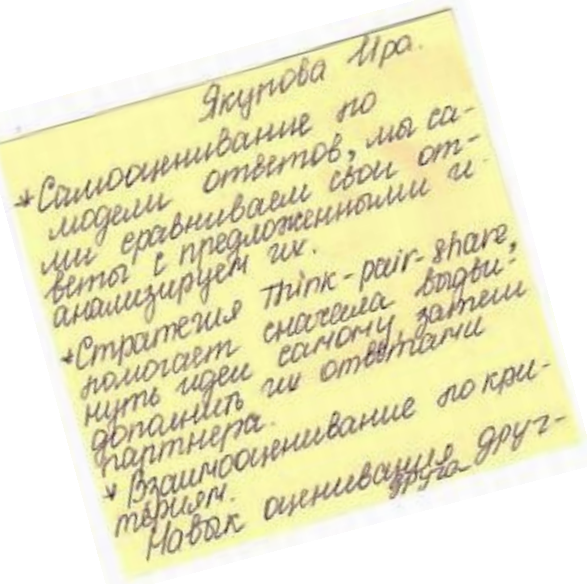 Якупова Ира.
*Самооценивание по
модели ответов, мы са-
ми сравниваем свои от-
веты с предложенными и
анализируем их.
*Стратегия think-pair-share,
помогает сначала выдви-
нуть идеи самому, затем
дополнить их ответами
партнера.
*Взаимооценивание по кри-
териям.
Навык оценивания друг-
друга